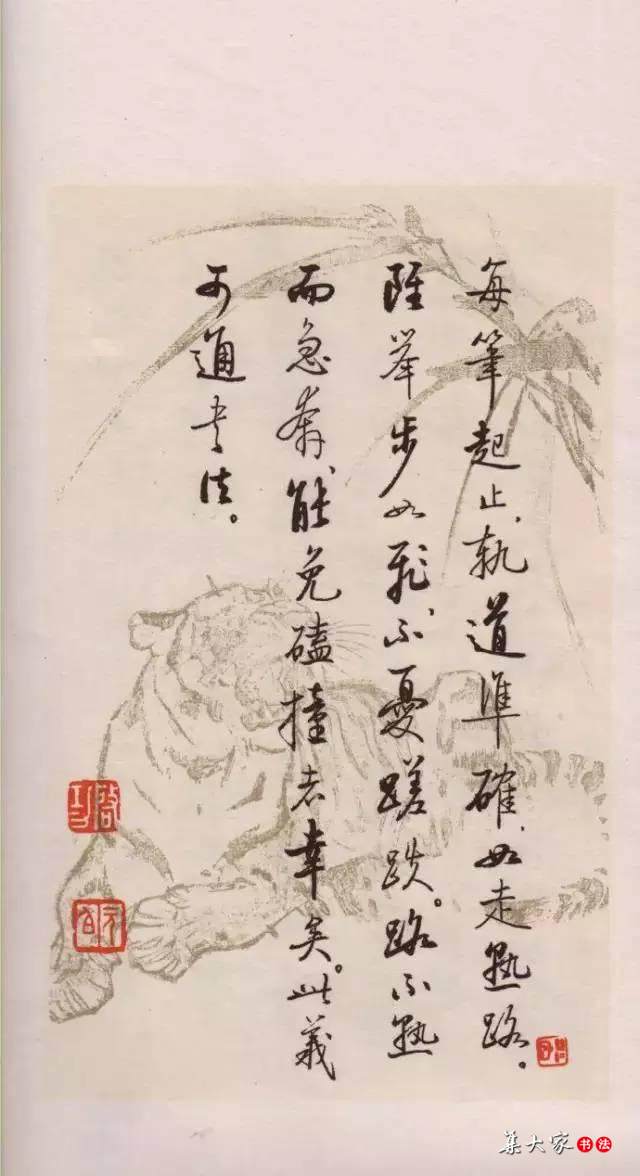 每筆起止、軌道準確、如走熟路。
雖舉步如飛、不憂蹉跌。路不熟
而急奔、能免磕撞者幸矣。此義
可通書法。
启功
元白
集大家书法